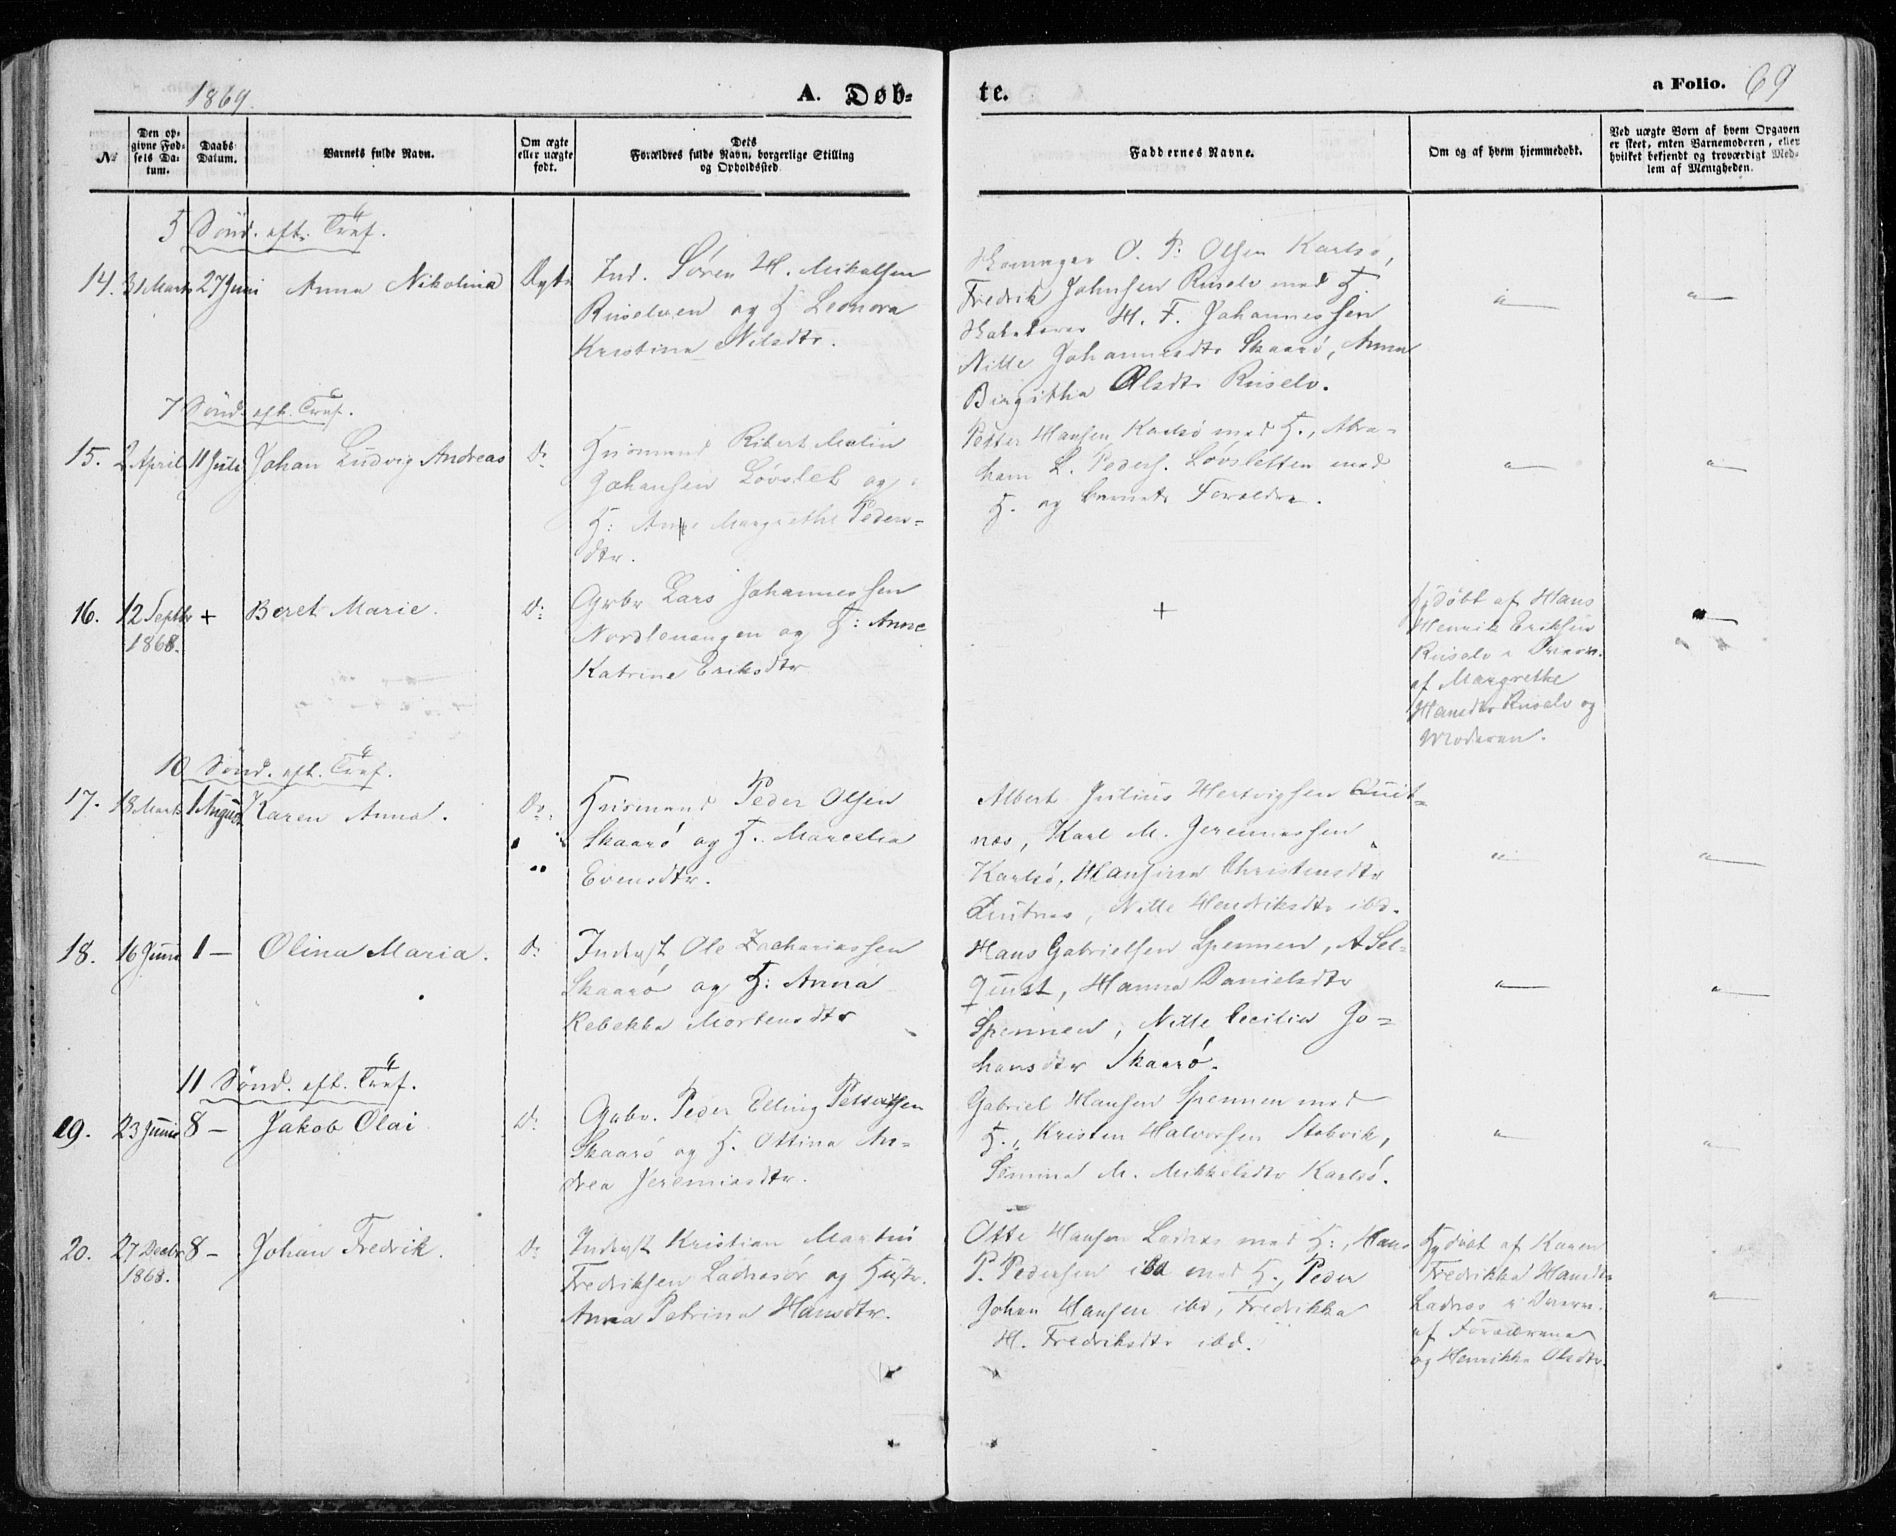 1869.
A. Døb-
te.
a Folio. 69
No
Den op-
givne Fød-
sels Da-
tum.
Daabs
Datum.
Barnets fulde Navn.
Om ægte
eller uægte
født.
Dets
Forældres fulde Navn, borgerlige Stilling
og Opholdssted.
Faddernes Navne.
Om og af hvem hjemmedøbt.
Ved uægte Børn af hvem Opgaven
er skeet, enten Barnemoderen, eller
hvilket bekjendt og troværdigt Med-
lem af Menigheden.
5 Sønd. eft. Tref.
14. 31 Marts 27 Juni Anna Nikolina Ægte
Ind. Søren H. Mikalsen
Riiselven og H. Leonora
Kristina Nilsdtr.
O. P. Olsen Karlsø,
Fredrik Johnsen Riiselv med H.
H. F. Johannessen
Nille Johannesdtr Skaarø, Anna
Birgitha Olsdtr Riiselv.
7 Sønd. eft. Tref.
15. 2 April 11 Juli Johan Ludvig Andreas D:
Huusmand Ribert Malin
Johansen Løvslet og
H: Anne Margrethe Peders-
dtr.
Petter Hansen Karlsø med H., Abra-
ham L. Peders. Løvsletten med
H. og barnets Forældre.
16. 12 Septbr + Beret Marie. D:
1868.
Grbr Lars Johannessen
Nordlenangen og H: Anne
Katrine Eriksdtr
+
Hjdøbt af Hans
Henrik Eriksen
Riiselv i Overv.
af Margrethe
Hansdtr Riiselv og
Moderen.
10 Sønd. eft. Tref.
17. 18 Marts 1 August Karen Anna. Do.
Huusmand Peder Olsen
Skaarø og H. Marcelia
Evensdtr.
Albert Julius Hertvigsen Quit-
næs, Karl M. Jeremiassen
Karlsø, Hansina Christensdtr
Quitnæs, Nille Hendriksdtr ibd.
18. 16 Juni 1 — Olina Maria. D:
Inderst Ole Zachariassen
Skaarø og H: Anna
Rebekka Mortensdtr
Hans Gabrielsen Spennen, A Sel-
quist, Hanna Danielsdtr
Spennen, Nille Cecilia Jo-
hansdtr Skaarø.
11 Sønd. eft. Tref.
19. 23 Juni 8 — Jakob Olai D:
Gabr. Peder Elling Pettersen
Skaarø og H. Ottina An-
drea Jeremiasdtr.
Gabriel Hansen Spennen med
H., Kristen Halvorsen Stabvik,
M. Mikkelsdtr Karlsø.
20. 27 Decbr 8 — Johan Fredrik. D:
1868.
Inderst Kristian Martin
Fredriksen Ladnesør og Hustr.
Anna Petrina Hansdtr.
Otte Hansen Ladnes med H:, Hans
P. Pedersen ibd med H., Peder
Johan Hansen ibd, Fredrikka
H. Fredriksdtr ibd.
Hjdøbt af Karen
Fredrikka Hansdtr
Ladnes i Overv.
af Forældrene
og Henrikka Olsdtr.